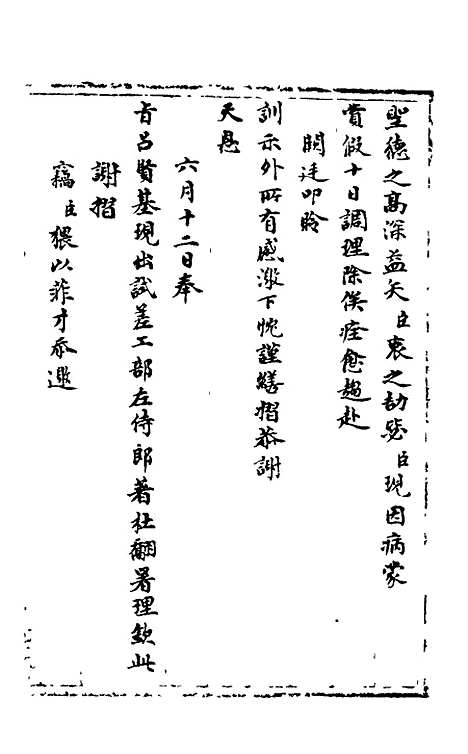 聖德之高深益矢臣衷之劼毖臣現因病蒙
賞假十日調理除俟痊愈趨赴
闕廷叩聆
訓示外所有感激下忱謹繕摺恭謝
天恩
六月十二日奉
旨呂賢基現出試差工部左侍郎著杜翻署理欽此
謝摺
竊臣猥以菲才忝邀